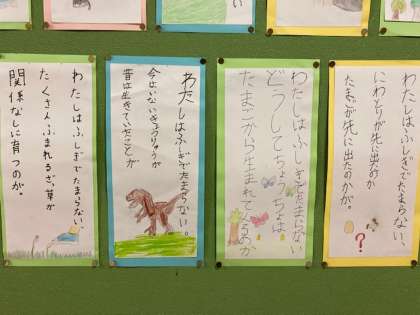 わたしはふしぎでたまらない、
にわとりが先に出たのか
たまごが先に出たのかが。
?
わたしはふしぎでたまらない
どうしてちょうちょは
たまごから生まれてくるのか
わたしはふしぎでたまらない。
今はいないきょうりゅうが
昔は生きていたことが
わたしはふしぎでたまらない、
たくさんふまれるざっ草が
関係なしに育つのが。